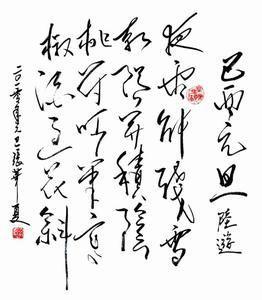 己酉元旦 陸遊
夜雨解殘雪
朝陽開積陰
桃符呵筆寫
椒酒過花斜
二〇一零年元旦